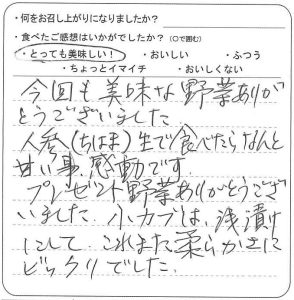 ・何をお召し上がりになりましたか？
・食べたご感想はいかがでしたか？（○で囲む）
・とっても美味しい！ ・おいしい ・ふつう
・ちょっとイマイチ ・おいしくない
今回も美味な野菜ありが
とうございました
人参（ちはま）生で食べたらなんと
甘い事、感動です。
プレゼント野菜ありがとうござ
いました。小カブは、浅漬け
にして、これまた柔らかさに
ビックリでした。